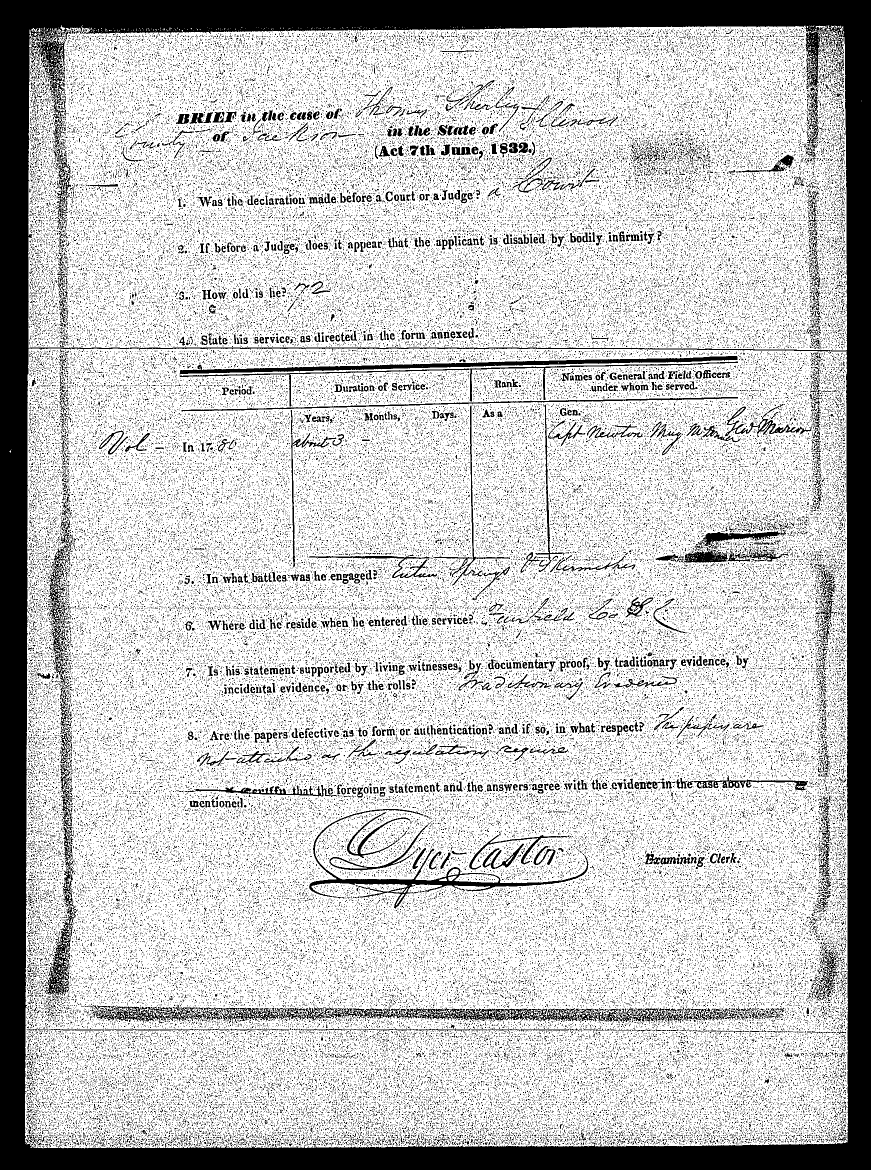 BRIEF in the case of Thomas Sherley
County of Jackson in the State of Illinois
(Act 7th June, 1832.)
1. Was the declaration made before a Court or a Judge? a Court
2. If before a Judge, does it appear that the applicant is disabled by bodily infirmity?
3. How old is he? 72
4. State his service, as directed in the form annexed.
Period. Duration of Service. Rank. Names of General and Field Officers
under whom he served.
Years, Months, Days. As a Gen.
Vol - In 17 80 about 3 - Capt Newton Genl Marion
5. In what battles was he engaged? Eutaw Springs & Skirmishes
6. Where did he reside when he entered the service? Fairfield Co S. C
7. Is his statement supported by living witnesses, by documentary proof, by traditionary evidence, by
incidental evidence, or by the rolls? Traditionary Evidence
8. Are the papers defective as to form or authentication? and if so, in what respect? The papers are
not attached as the regulations require
that the foregoing statement and the answers agree with the evidence in the case above
mentioned.
Dyer Castor Examining Clerk.